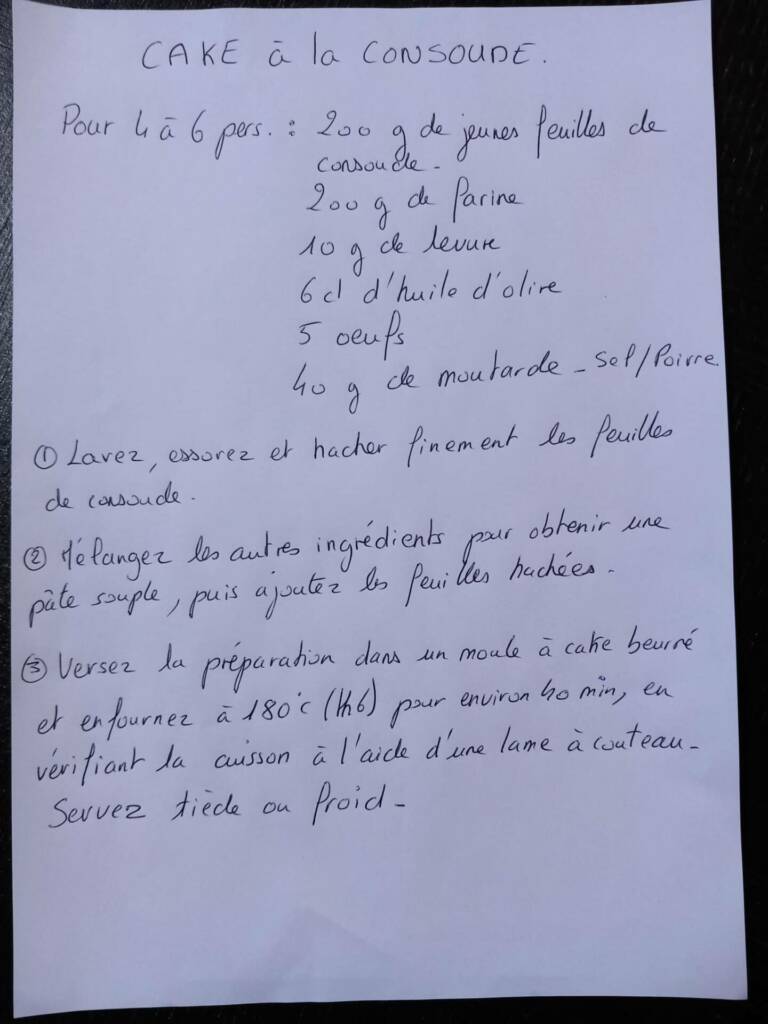 CAKE à la CONSOUDE.
Pour 4 à 6 pers. : 200 g de jeunes feuilles de
consoude -
200 g de farine
10 g de levure
6 cl d'huile d'olive
5 oeufs
40 g de moutarde - Sel/Poivre
① Lavez, essorez et hacher finement les feuilles
de consoude.
② Mélangez les autres ingrédients pour obtenir une
pâte souple, puis ajoutez les feuilles hachées.
③ Versez la préparation dans un moule à cake beurré
et enfournez à 180°c (th6) pour environ 40 min, en
vérifiant la cuisson à l'aide d'une lame à couteau -
Servez tiède ou froid -